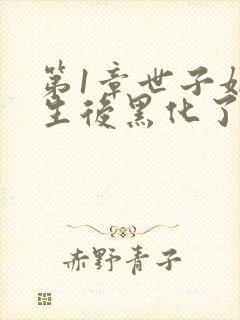 第1章世子
生後黑化了
赤野青子